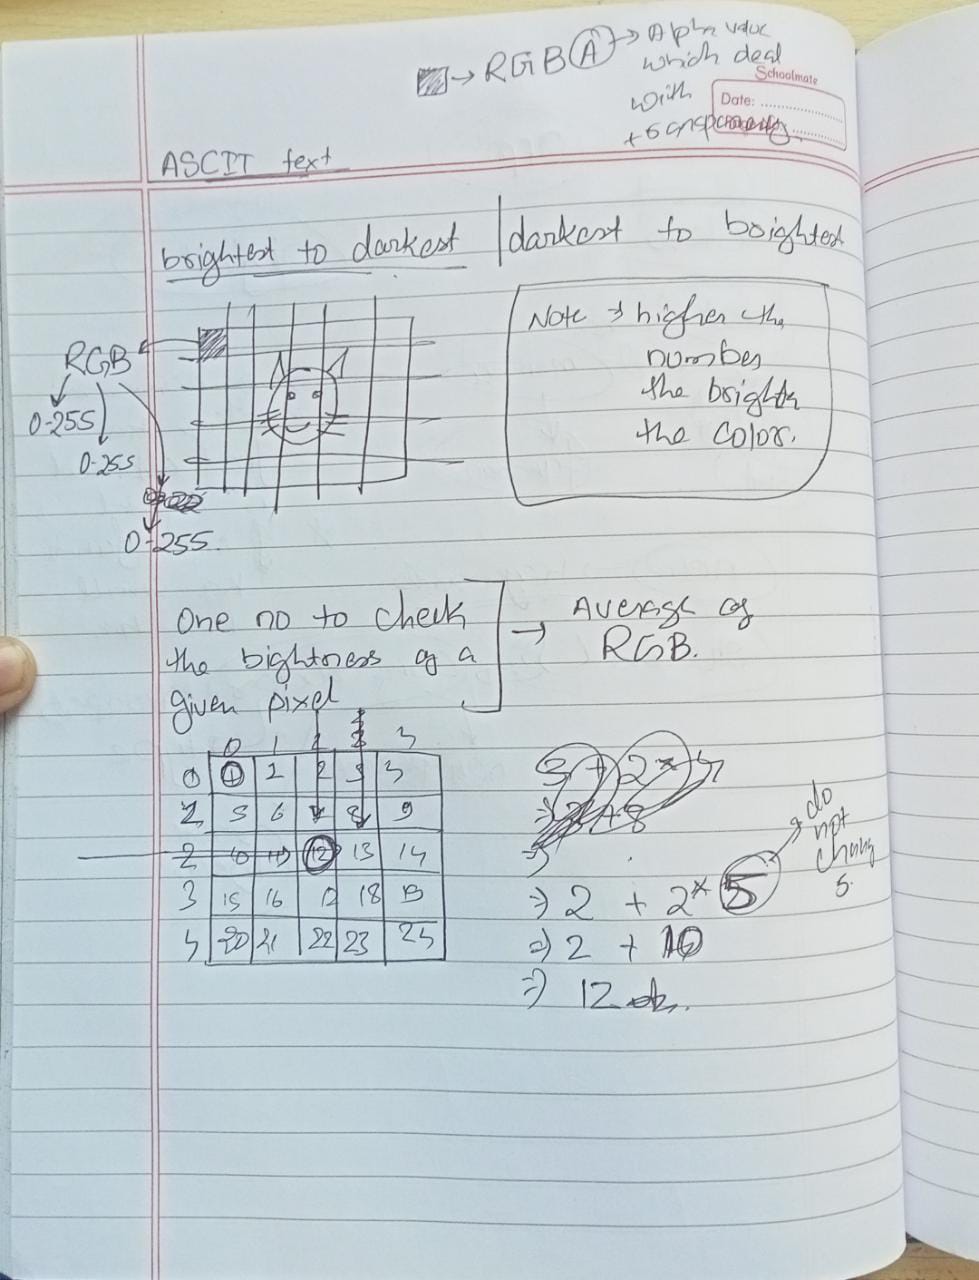 → RGB A → Alpha value
which deal
with
transparency.
Schoolmate
Date:
ASCII text
brightest to darkest | darkest to brightest
Note → higher the
number
the brighter
the color.
RGB
0-255
0-255
0-255
One no to check
the bightness of a
given pixel
→ Average of
RGB.
0 1
0 1 2 3
5 6 8 9
2 10 11 12 13 14
3 15 16 18
20 21 22 23
do
not
⇒ 2 + 2* 5
⇒ 2 + 10
⇒ 12